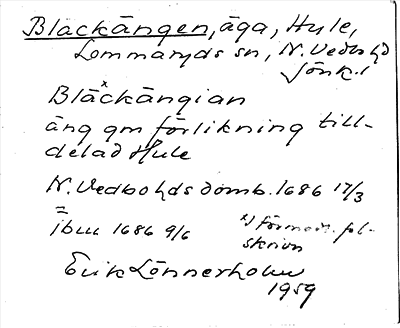 Blackängen, äga, Hyle,
Lommaryds sn, N. Vedbo hd
Jönk. l
Bläckängian
äng gm förlikning till-
delad Hule
N. Vedbo hds domb. 1686 17/3
= ibm 1686 9/6
x) förmod. fel-
skrivn
Erik Lönnerholm
1959